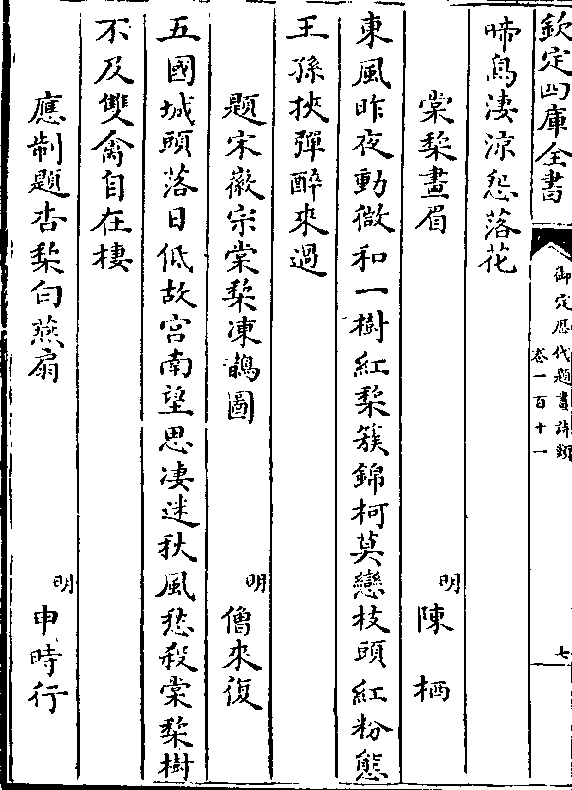 欽定四庫全書
御定歷代題畫詩類
卷一百十一
七
啼鳥淒涼怨落花
棠梨畫眉
明 陳栖
東風昨夜動微和一樹紅棃簇錦柯莫戀枝頭紅粉態
王孫挾彈醉來過
題宋徽宗棠棃凍鵲圖
明 僧來復
五國城頭落日低故宫南望思凄迷秋風愁殺棠棃樹
不及雙禽自在棲
應制題杏棃白燕扇
明 申時行